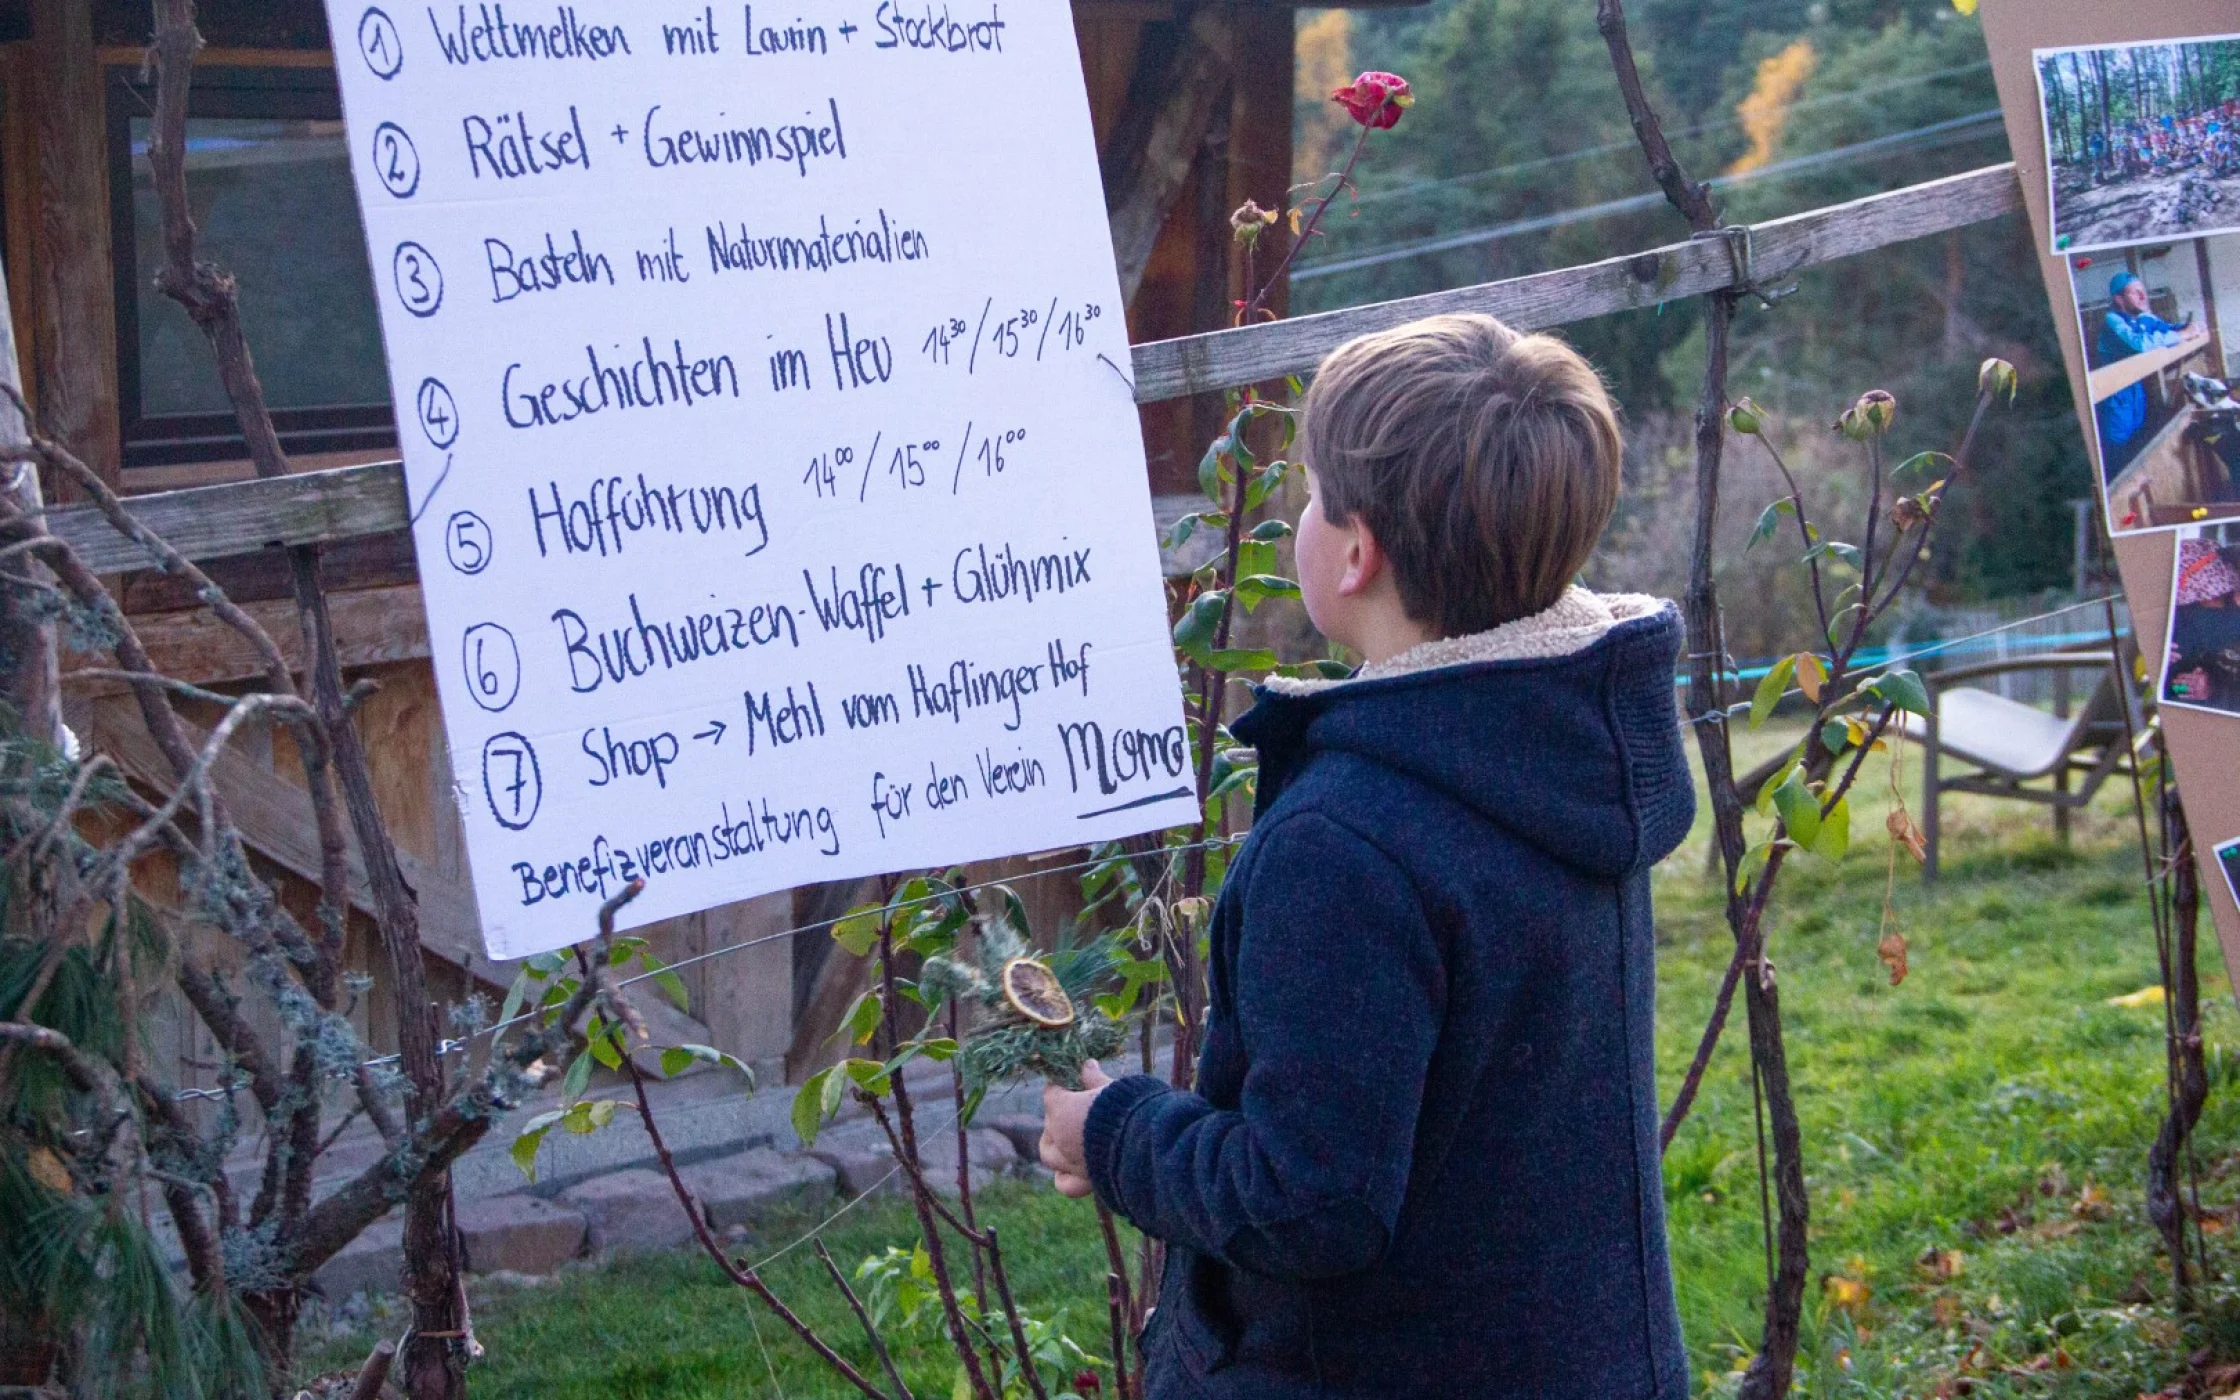 ① Wettmelken mit Laurin + Stockbrot
② Rätsel + Gewinnspiel
③ Basteln mit Naturmaterialien
④ Geschichten im Heu 14³⁰/15³⁰/16³⁰
⑤ Hofführung 14⁰⁰/15⁰⁰/16⁰⁰
⑥ Buchweizen-Waffel + Glühmix
⑦ Shop → Mehl vom Haflinger Hof
Benefizveranstaltung für den Verein Momo